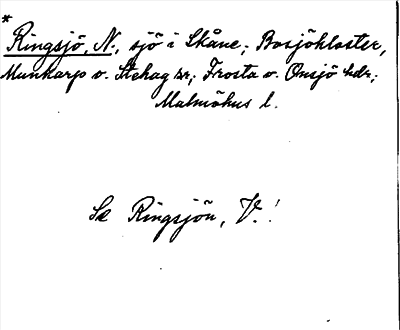 *
Ringsjö, N., sjö i Skåne; Bosjökloster,
Munkarp o. Stehag snr; Frosta o. Onsjö hdr;
Malmöhus l.
Se Ringsjön, V.!